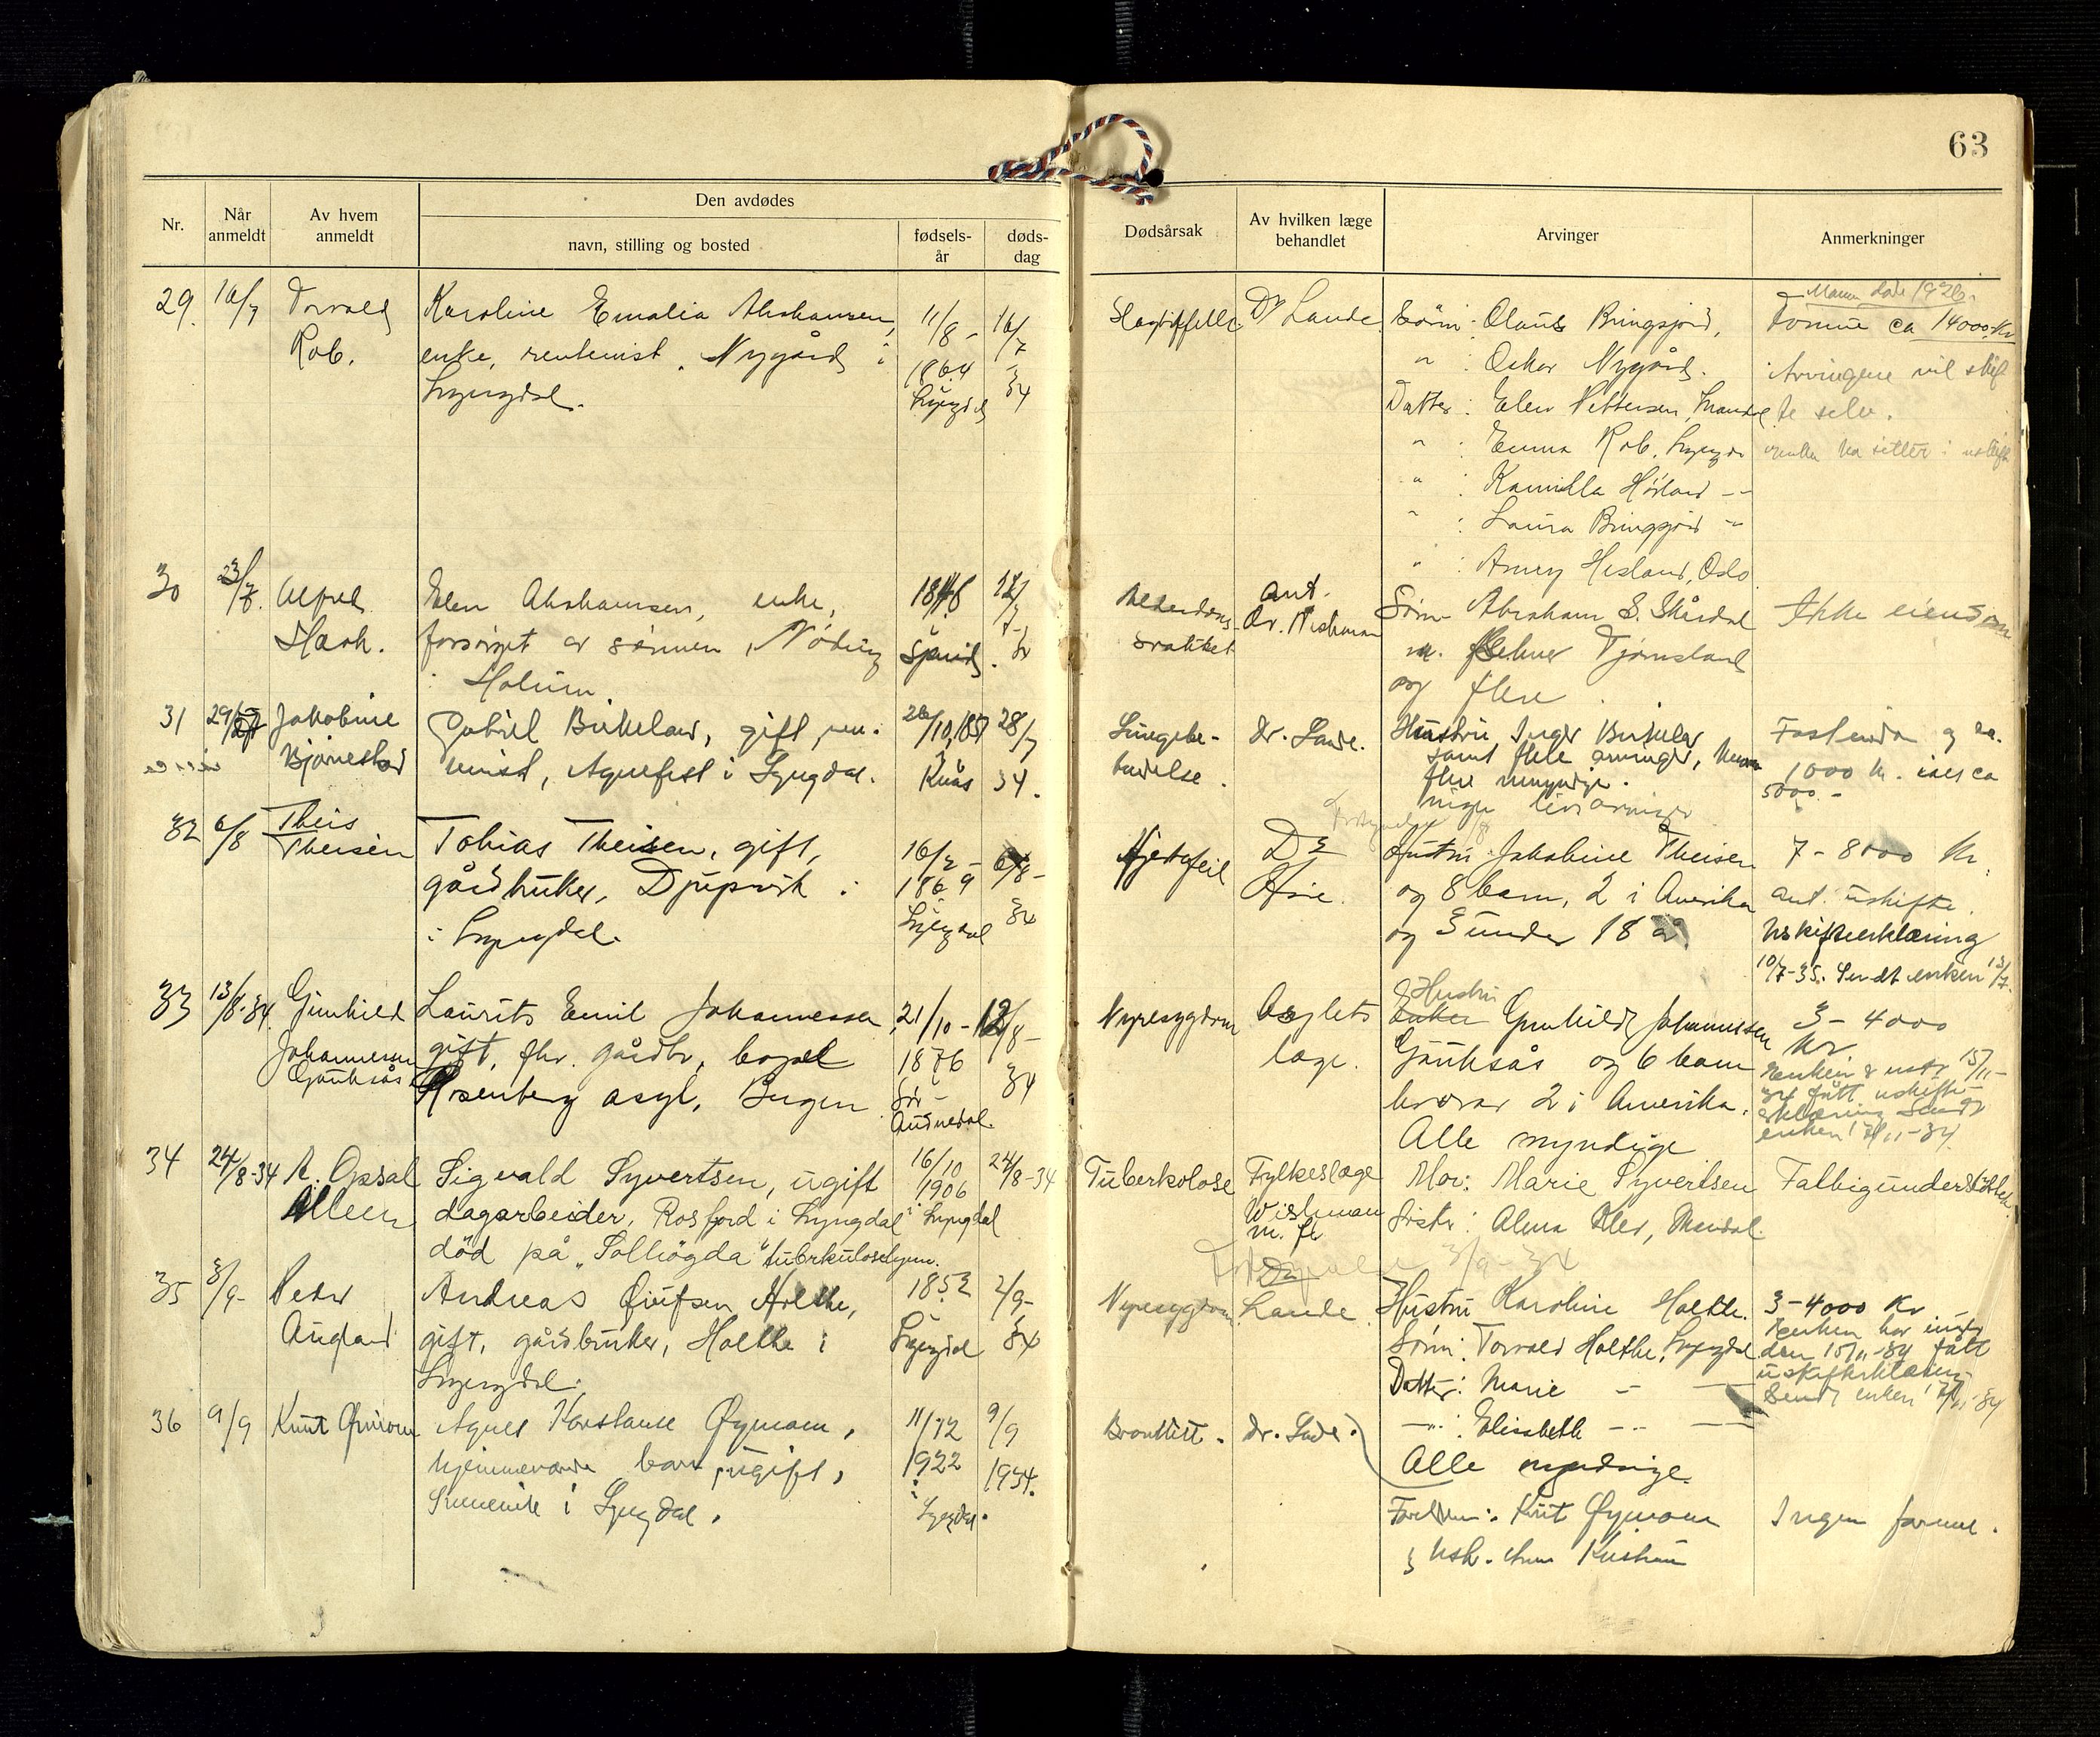 63
Nr.
Når anmeldt
Av hvem anmeldt
Den avdødes
navn, stilling og bosted
fødsels-år
døds-dag
Dødsårsak
Av hvilken læge behandlet
Arvinger
Anmerkninger
29. 16/7 Torvald Rob.
Karoline Emalia Abrahamsen,
enke, rentenist, Nygård i
Lyngdal.
11/8 - 1864 Lyngdal
16/7 34
Slagtilfelle
Dr Lande
Sønn: Olaus Bringsjord,
" : Oskar Nygård.
Datter: Elen Pettersen, Mandal
" : Emma Rob, Lyngdal
" : Kamilla Hårland - "
" : Laura Bringsjord "
" : Anny Hesland, Oslo
Mann døde 1926.
Formue ca 14000 Kr
Arvingene vil skif
te selv.
enken ha sittet i uskifte
30 23/7. Alfred Haah.
Elen Abrahamsen, enke,
forsørget av sønnen, Nøding
i Holum.
1848
Spind.
Alderdoms
svakhet
ant.
Dr. Wishman
Sønn Abraham S. Skårdal
og flere.
Ikke eiendom
31 29/7 Jakobine Bjørnestad
Gabriel Birkeland, gift, ren-
tenist, Agnefest i Lyngdal.
26/10, 1857 Kvås
28/7 34.
Lungebe-
tendelse.
dr. Lande.
Hustru Inger Birkeland
samt flere arvinger, hvorav
flere umyndige.
ingen livsarvinger
Fast eiendom og ca.
1000 kr. i alt ca
5000.-
32 6/8 Theis Theisen
Tobias Theisen, gift,
gårdbruker, Djupvik i
i Lyngdal.
16/2 - 1869 Lyngdal
6/8 - 34
Hjertefeil
Dr
Hustru Jakobine Theisen
og 8 barn, 2 i Amerika
og 3 under 18 år
7 - 8000 Kr
ant. uskifte.
Uskifteerklæring
10/7-35. Sendt enken 13/7.
33 13/8-34. Gunhild Johannesen Gauksås
Laurits Emil Johannessen,
gift, fhv. gårdbr, bopel
Rosenberg asyl, Bergen
21/10 - 1876 Sør-Audnedal.
12/8 - 34
Nyresygdom
Asylets læge.
Hustru
Enken Gunhild Johannessen
Gauksås og 6 barn
hvorav 2 i Amerika.
Alle myndige
3 - 4000
kr
Enken 15/11-
34 fått uskifte-
erklæring Sendt
enken 17/11-34
34 24/8-34 A. Opsal Alleen
Sigvald Syvertsen, ugift
dagarbeider, Rosfjord i Lyngdal
død på "Solhøgda" tuberkulosehjem.
16/10 1906 i Lyngdal
24/8-34
Tuberkolose
Fylkeslæge Wishman m. fl
Mor: Marie Syvertsen
Søster: Alma Aler, Mandal.
Fattigunderstøttet.
35 3/9- Peder Augland
Andreas Gjufsen Holthe,
gift, gårdbruker, Holthe i
Lyngdal.
1852 Lyngdal
2/9- 34
Nyresygdom
Lande
3/9-34
Hustru Karoline Holthe.
Sønn: Torvald Holthe, Lyngdal
Datter: Marie - —
— " : Elisabeth - " - —
Alle myndige.
3-4000 Kr
Enken har
den 15/11-34 fått
uskifteerklæring
Sendt enken 17/11-34
36 9/9 Knut Øymoen
Agnes Konstanse Øymoen,
hjemmeværende barn, ugift,
i Lyngdal.
11/12 1922 i Lyngdal.
9/9 1934.
Bronkitt.
dr. Lande.
Foreldrene: Knut Øymoen
Ingen formue.